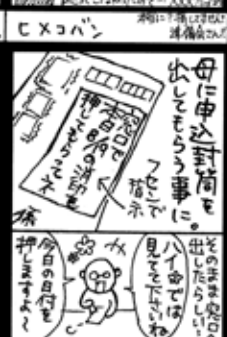 ヒメコバン
母に申込封筒を
出してもらう事に。
窓口で
本日8/19の消印を
押してもらってネ
フセンで
指示
様
そのまま窓口へ
出したらしい…
ハイ☆では
見てて下さいね
今日の日付を
押しますよ〜